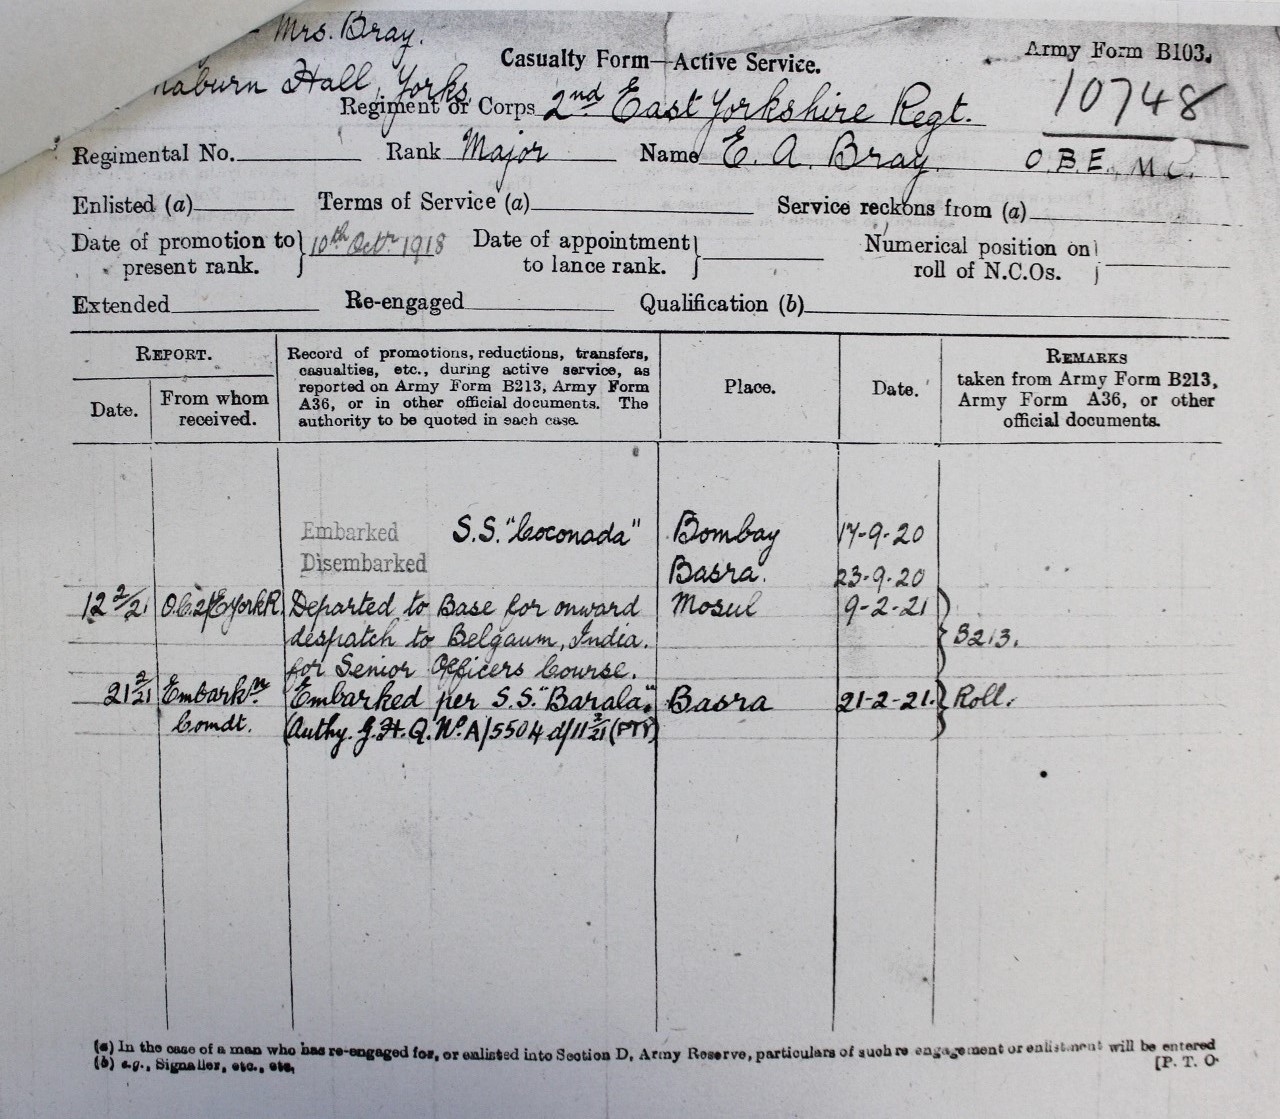 Mrs. Bray.
Hall, Yorks.
Casualty Form—Active Service.
Army Form B103.
10748
Regiment or Corps 2nd East Yorkshire Regt.
Regimental No. Rank Major Name E. A. Bray. O.B.E., M.C.
Enlisted (a) Terms of Service (a) Service reckons from (a)
Date of promotion to present rank. 10th Octr 1918 Date of appointment to lance rank. Numerical position on roll of N.C.Os.
Extended Re-engaged Qualification (b)
REPORT.
Date.
From whom received.
Record of promotions, reductions, transfers,
casualties, etc., during active service, as
reported on Army Form B213, Army Form
A36, or in other official documents. The
authority to be quoted in each case.
Place.
Date.
REMARKS
taken from Army Form B213,
Army Form A36, or other
official documents.
Embarked S.S. "Coconada" Bombay 17-9-20
Disembarked Basra. 23-9-20
12 2/21 O.C. 2/E.York R. Departed to Base for onward Mosul 9-2-21
despatch to Belgaum, India. B213.
for Senior Officers Course.
21 2/21 Embarkn Embarked per S.S. "Barala." Basra 21-2-21. Roll.
Comdt. (Authy. G.H.Q. No. A/5504 d/11 2/21
(a) In the case of a man who has re-engaged for, or enlisted into Section D, Army Reserve, particulars of such re engagement or enlistment will be entered
(b) e.g., Signaller, etc., etc, [P. T. O.